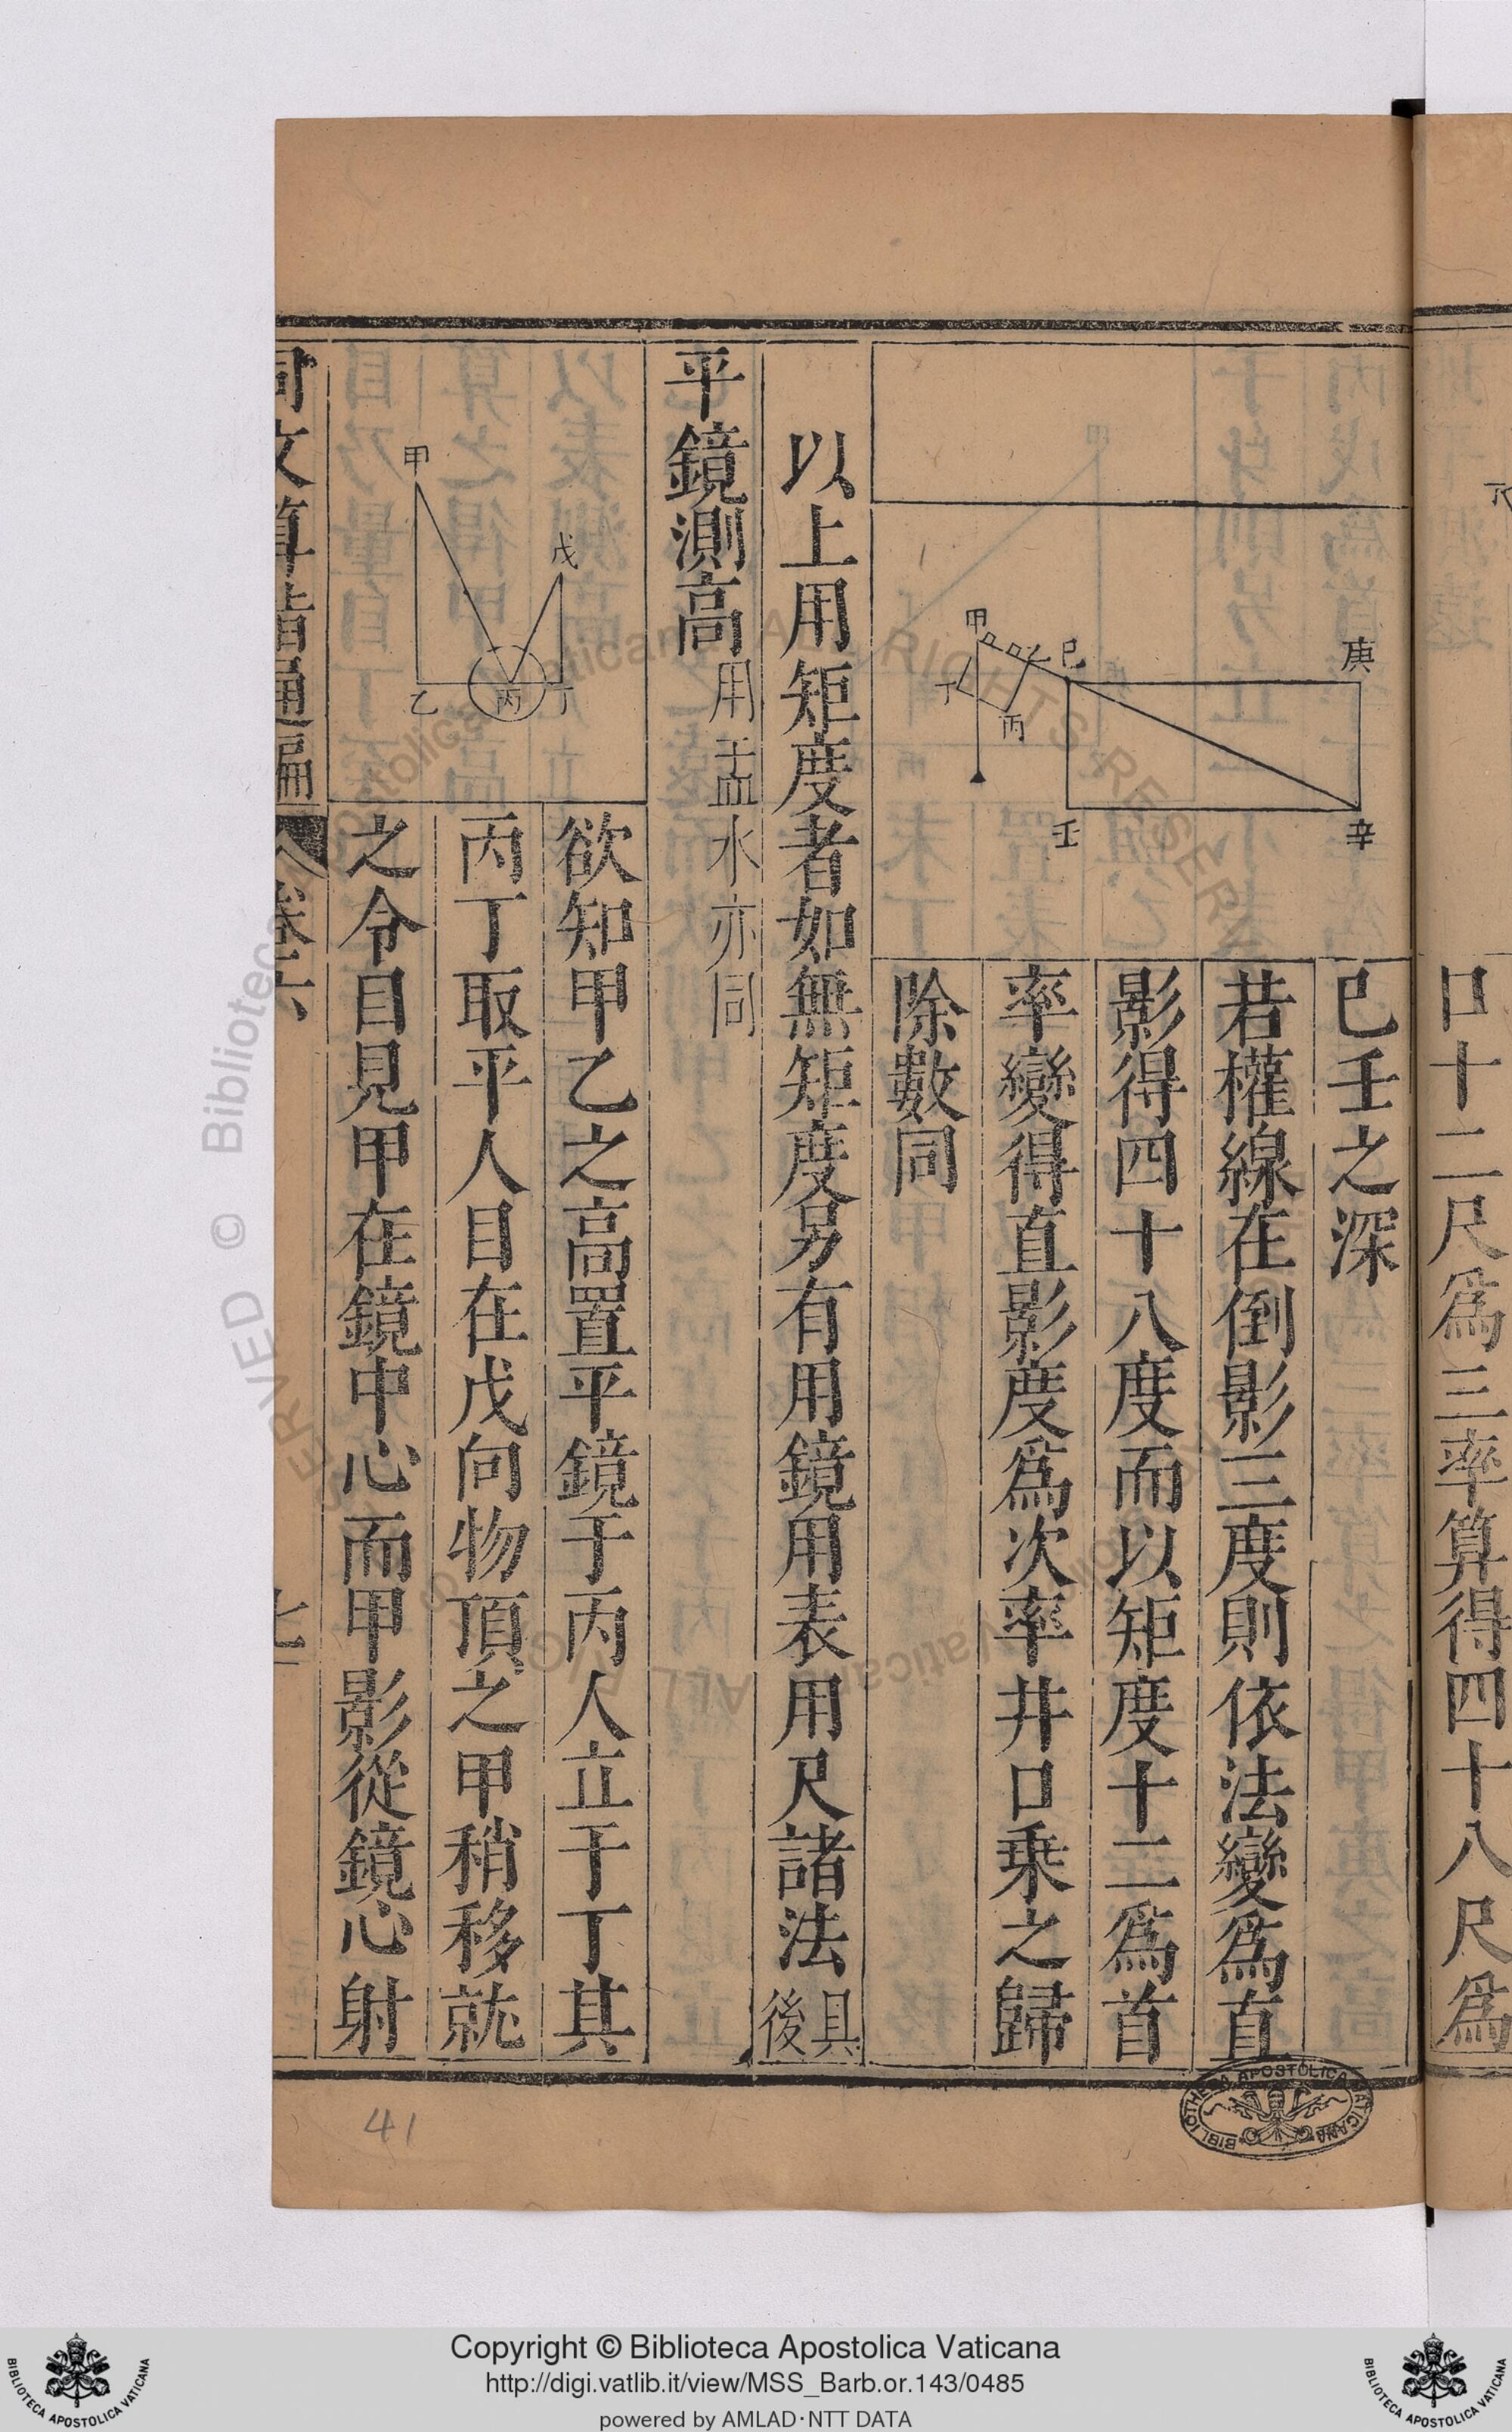 口十二尺爲三率算得四十八尺爲
己壬之深
若權線在倒影三度則依法變爲直
影得四十八度而以矩度十二爲首
率變得直影度爲次率井口乗之歸
除數同
甲
乙
丙
丁
己
庚
壬
辛
以上用矩度者如無矩度另有用鏡用表用尺諸法具後
平鏡測高用盂水亦同
甲
戊
乙
丙
丁
欲知甲乙之高置平鏡于丙人立于丁其
丙丁取平人目在戊向物頂之甲稍移就
之令目見甲在鏡中心而甲影從鏡心射
同文算指通編
卷六
七
41
BIBLIOTHECA APOSTOLICA VATICANA
Copyright © Biblioteca Apostolica Vaticana
http://digi.vatlib.it/view/MSS_Barb.or.143/0485
powered by AMLAD·NTT DATA
BIBLIOTECA APOSTOLICA VATICANA
BIBLIOTECA APOSTOLICA VATICANA